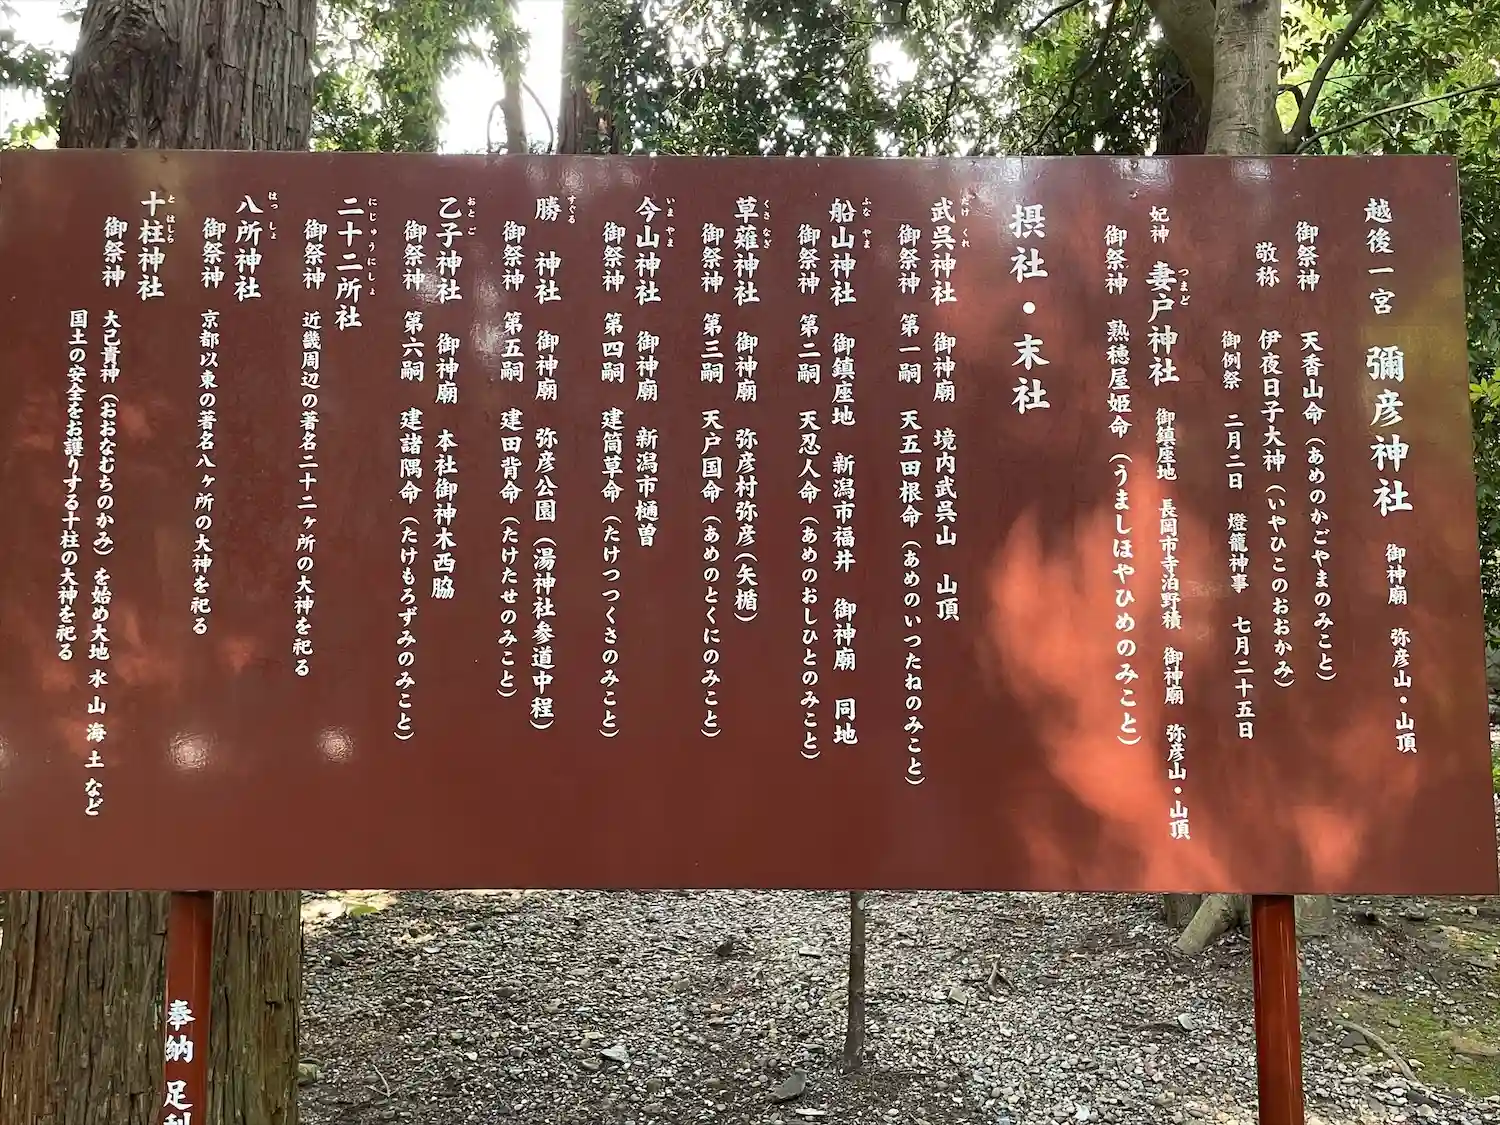 越後一宮 彌彦神社 御神廟 弥彦山・山頂
御祭神 天香山命（あめのかごやまのみこと）
敬称 伊夜日子大神（いやひこのおおかみ）
御例祭 二月二日 燈籠神事 七月二十五日
妃神 妻戸神社 御鎮座地 長岡市寺泊野積 御神廟 弥彦山・山頂
つまど
御祭神 熟穂屋姫命（うましほやひめのみこと）
摂社・末社
武呉神社 御神廟 境内武呉山 山頂
たけ くれ
御祭神 第一嗣 天五田根命（あめのいつたねのみこと）
船山神社 御鎮座地 新潟市福井 御神廟 同地
ふな やま
御祭神 第二嗣 天忍人命（あめのおしひとのみこと）
草薙神社 御神廟 弥彦村弥彦（矢楯）
くさ なぎ
御祭神 第三嗣 天戸国命（あめのとくにのみこと）
今山神社 御神廟 新潟市樋曽
いま やま
御祭神 第四嗣 建筒草命（たけつつくさのみこと）
勝 神社 御神廟 弥彦公園（湯神社参道中程）
すぐる
御祭神 第五嗣 建田背命（たけたせのみこと）
乙子神社 御神廟 本社御神木西脇
おと ご
御祭神 第六嗣 建諸隅命（たけもろずみのみこと）
二十二所社
にじゅうにしょ
御祭神 近畿周辺の著名二十二ヶ所の大神を祀る
八所神社
はっ しょ
御祭神 京都以東の著名八ヶ所の大神を祀る
十柱神社
と はしら
御祭神 大己貴神（おおなむちのかみ）を始め大地 水 山 海 土 など
国土の安全をお護りする十柱の大神を祀る
奉納 足利